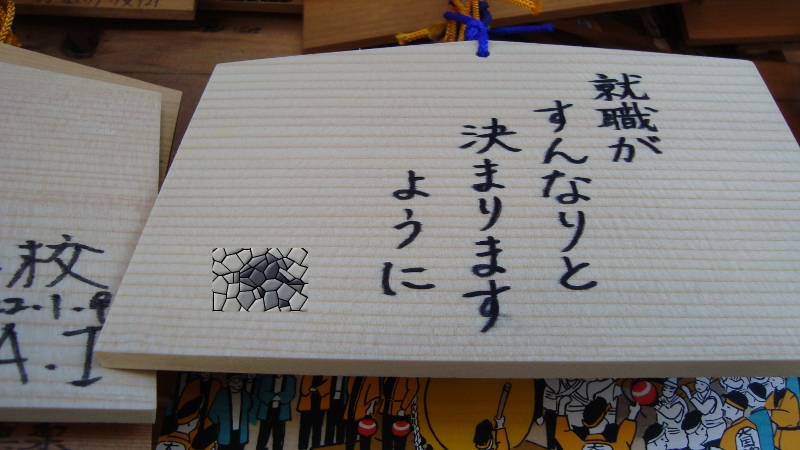 就職が
すんなりと
決まります
ように
校
2.1.9
A.I